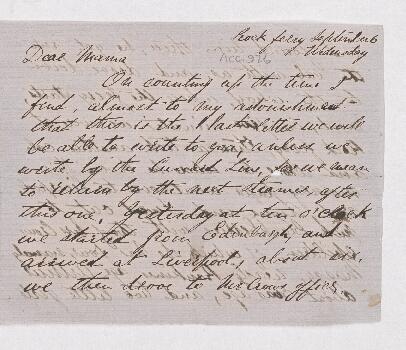 Rock ferry September 6
Wednesday
ACC. 976
Dear Mama
On counting up the time I
find, almost to my astonishment
that this is the last letter we will
be able to write to you, unless we
write by the Cunard Line, for we mean
to return by the next steamer after
this one. Yesterday at ten o'clock
we started from Edinburgh, and
arrived at Liverpool, about six,
we then drove to Mr Crows office,